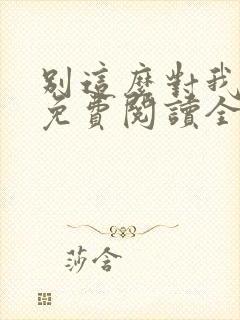 別這麼對我
免費閱讀全
莎含